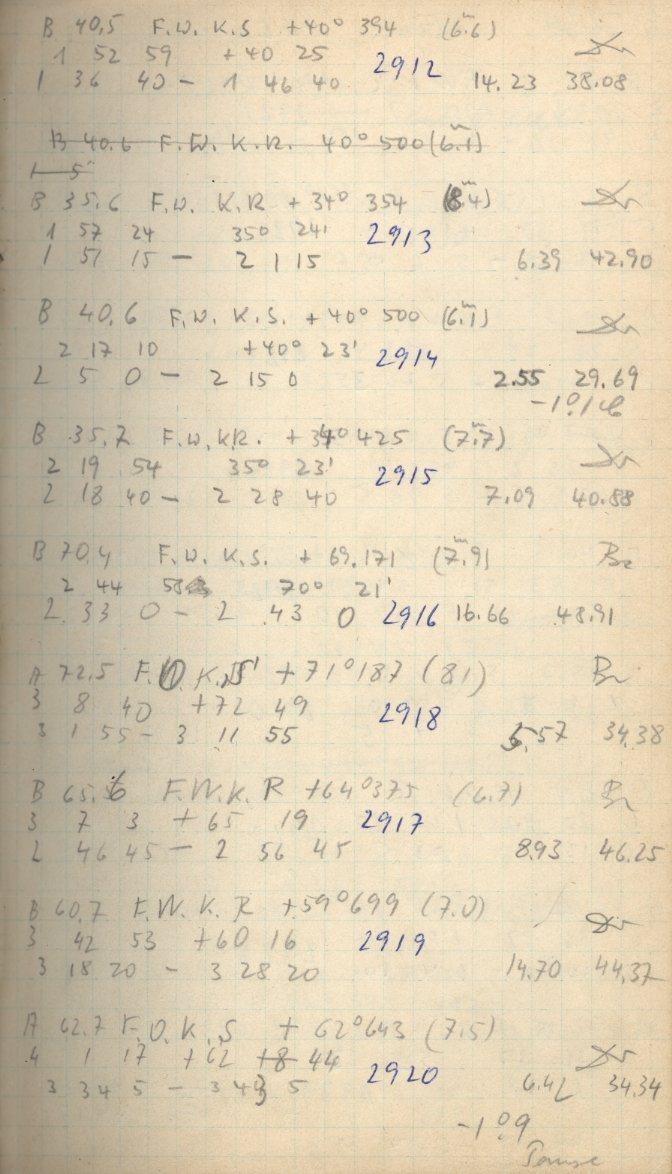 B 40,5 F.W. K.S +40° 394 (6.6)
1 52 59 +40 25 2912
1 36 40 - 1 46 40 14.23 38.08
B 40.6 F.W. K.R. 40° 500 (6.1)
1 5
B 35,6 F.W. K.R +34° 354 (8.4)
1 57 24 35° 24' 2913
1 51 15 - 2 1 15 6.39 42.90
B 40,6 F.W. K.S. +40° 500 (6.1)
2 17 10 +40° 23' 2914
2 5 0 - 2 15 0 2.55 29.69
B 35,7 F.W. K.R. +34° 425 (7.7)
2 19 54 35° 23' 2915
2 18 40 - 2 28 40 7.09 40.88
B 70,4 F.W. K.S. + 69.171 (7.9) Br
2 44 53 70° 21'
2 33 0 - 2 43 0 2916 16.66 48.91
A 72,5 F.O. K.S +71°187 (81) Br
3 8 40 +72 49 2918
3 1 55 - 3 11 55 5.57 34.38
B 65,6 F.W.K. R +64°375 (6.7) Br
3 7 3 +65 19 2917
2 46 45 - 2 56 45 8.93 46.25
B 60,7 F.W. K. R +59°699 (7.0)
3 42 53 +60 16 2919
3 18 20 - 3 28 20 14.70 44.37
A 62.7 F.O. K.S + 62°643 (7.5)
4 1 17 +62 +8 44 2920
3 34 5 - 3 43 5 6.42 34.34
-1°.9
Pause